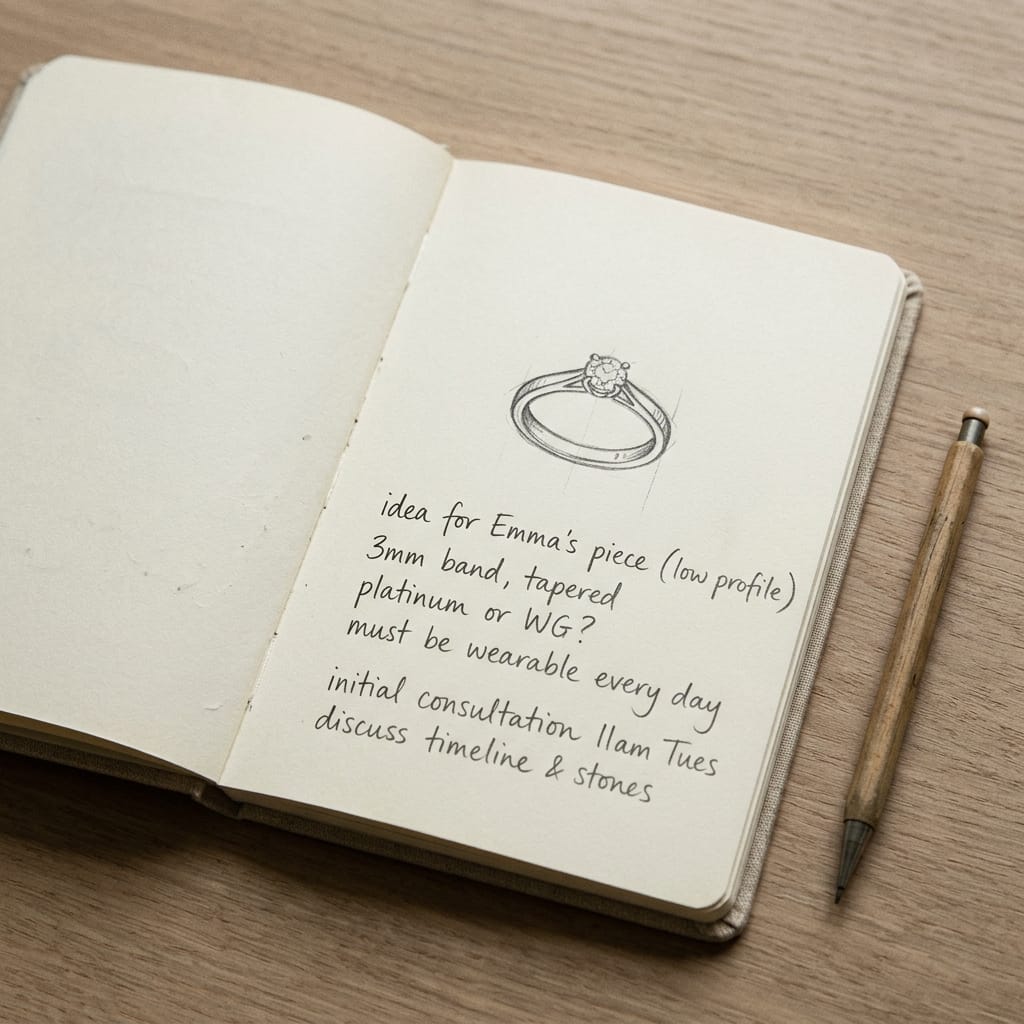 idea for Emma's piece (low profile)
3mm band, tapered
platinum or WG?
must be wearable every day
initial consultation 11am Tues
discuss timeline & stones